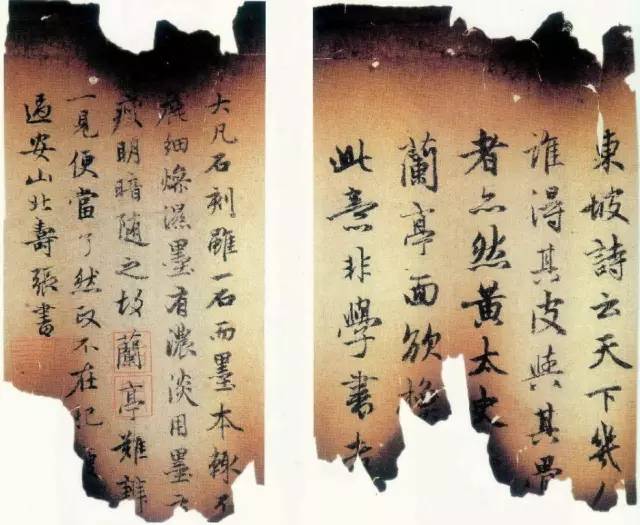 東坡詩云天下幾人
誰得其皮與其骨
者亦然黃太史
蘭亭面欲換
此意非學書者
大凡石刻雖一石而墨本輙不
麄細燥濕墨有濃淡用墨有
瘦明暗隨之故蘭亭難辨
一見便當了然政不在肥
過安山北壽張書